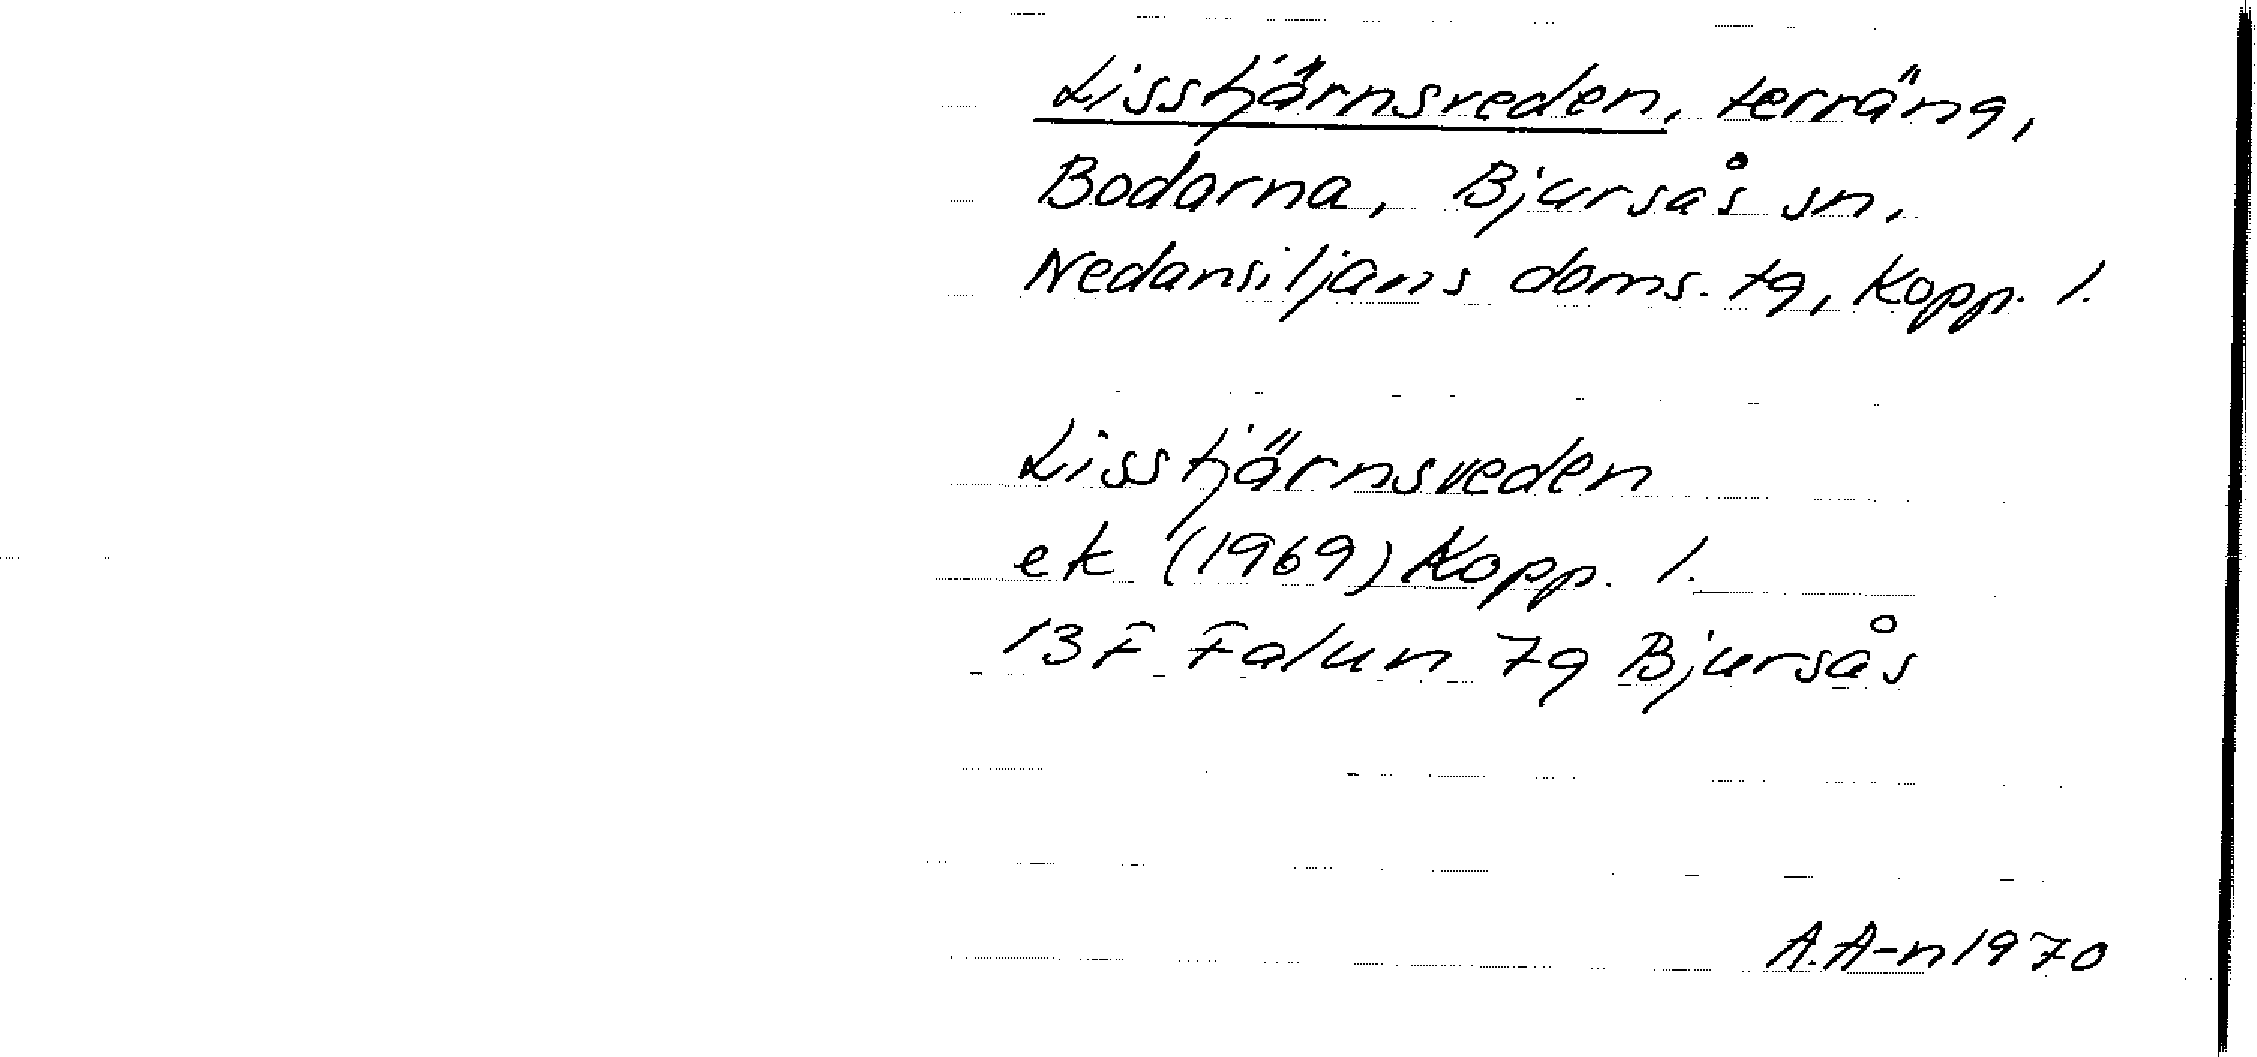 Lisstjärnsveden, terräng,
Bodarna, Bjursås sn,
Nedansiljans doms. tg, Kopp. l.
Lisstjärnsveden
ek (1969) Kopp. l.
13F Falun 7g Bjursås
A.A-n 1970